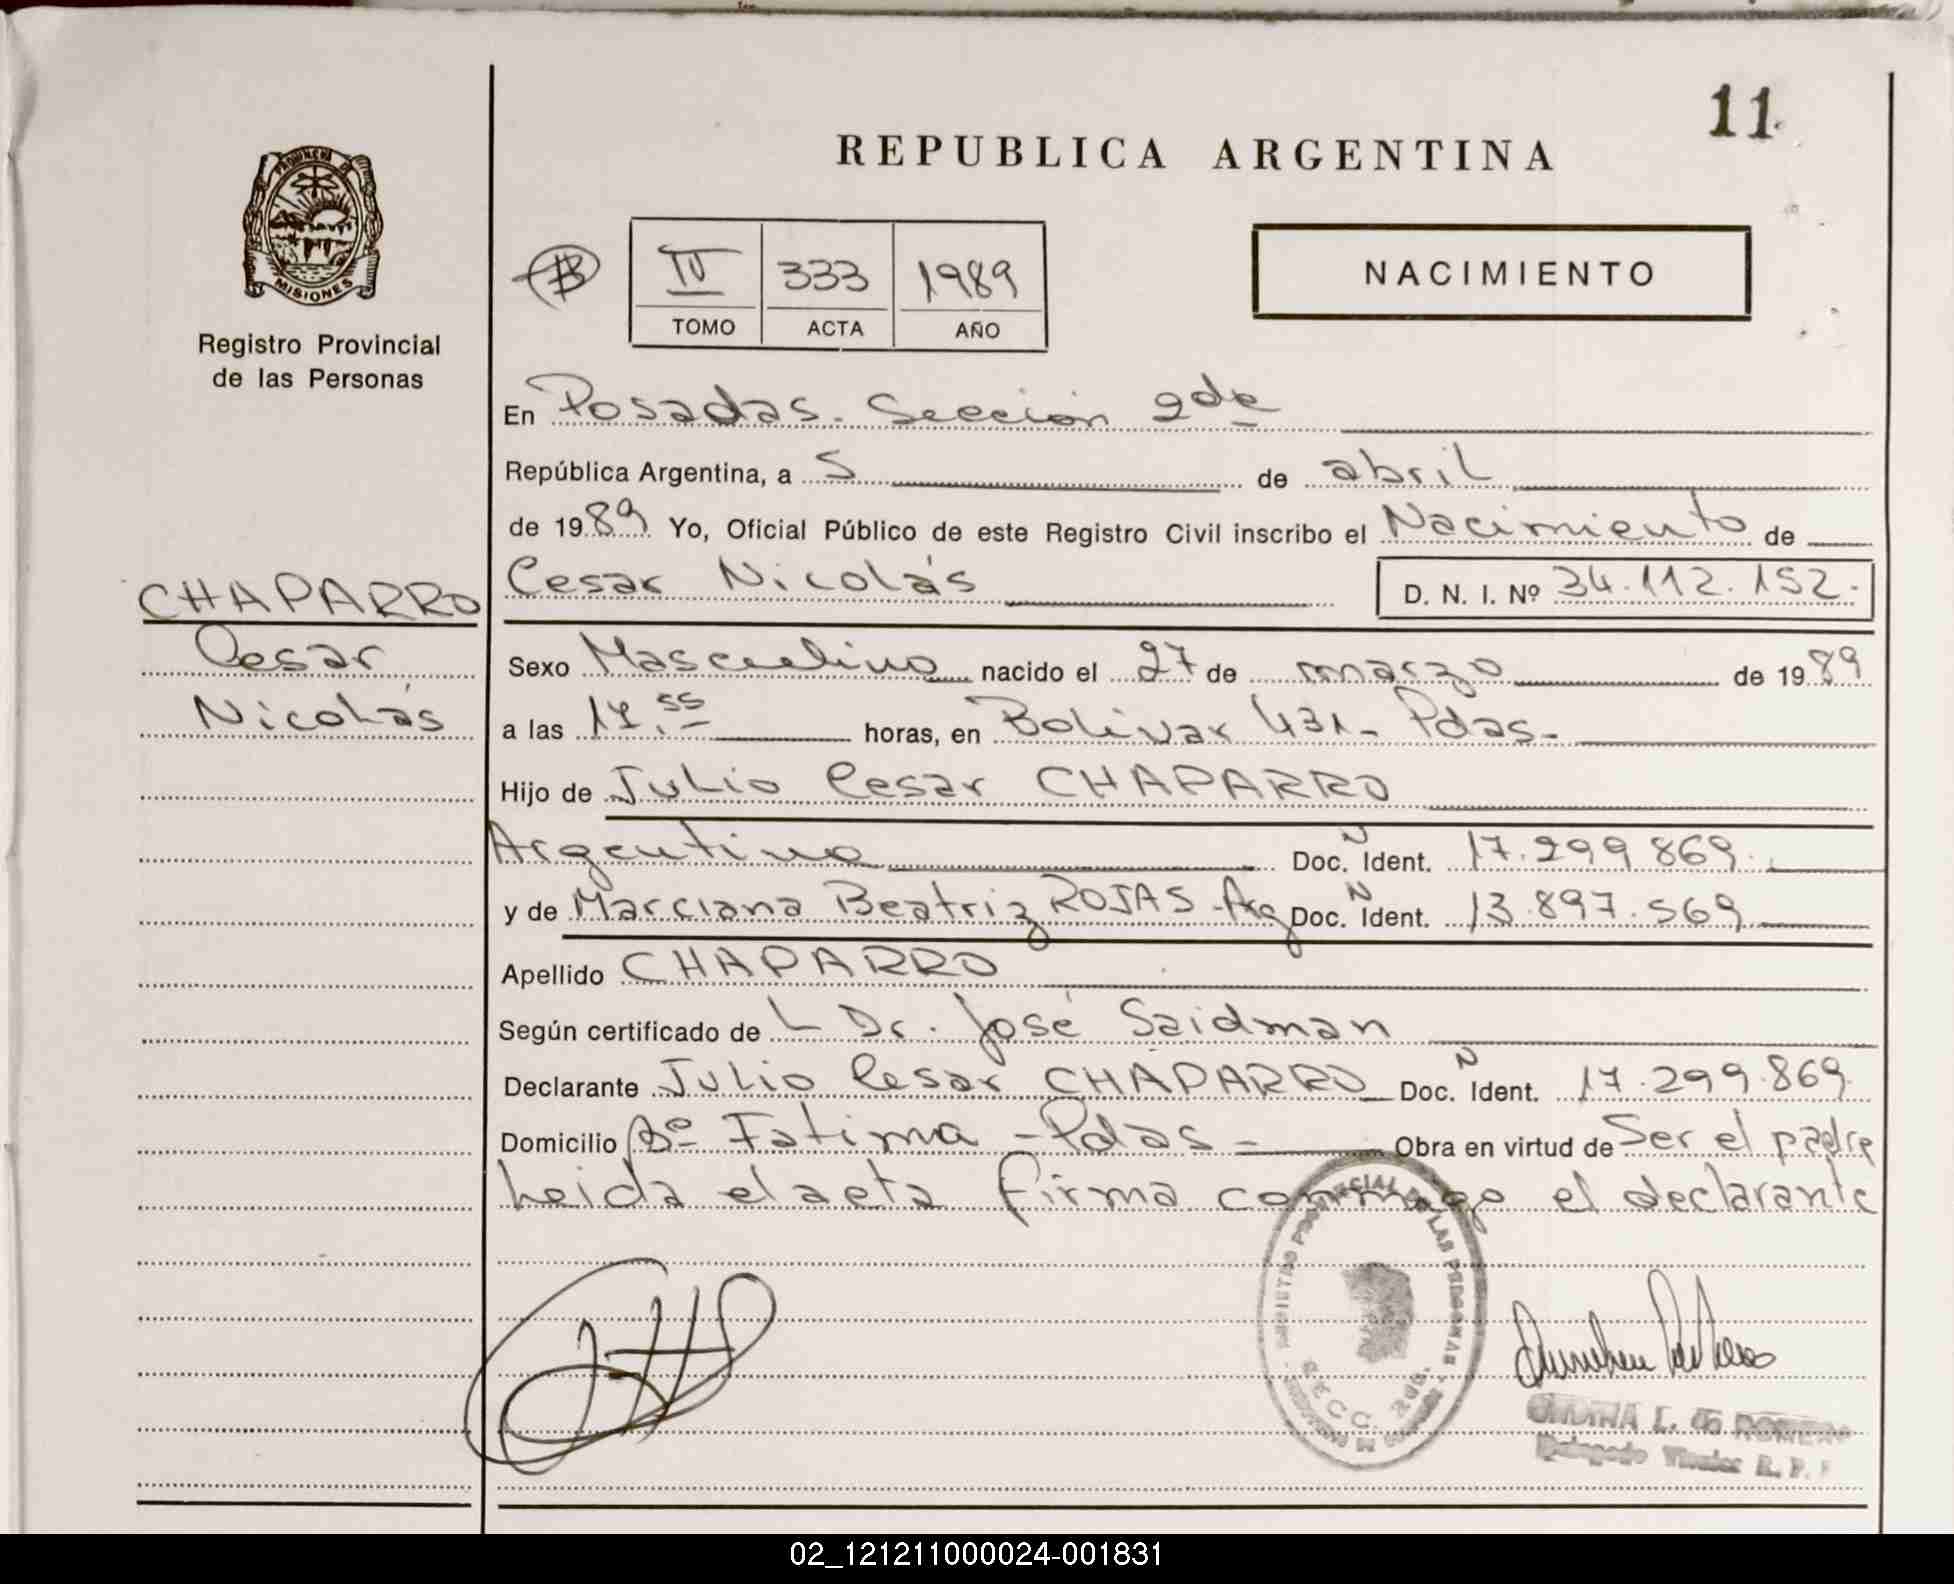 11
REPUBLICA ARGENTINA
PROVINCIA DE
MISIONES
Registro Provincial
de las Personas
B
IV 333 1989
TOMO ACTA AÑO
NACIMIENTO
En Posadas. Sección 2da
República Argentina, a 5 de abril
de 1989 Yo, Oficial Público de este Registro Civil inscribo el Nacimiento de
Cesar Nicolás D. N. I. Nº 34.112.152.-
CHAPARRO
Cesar
Nicolás
Sexo Masculino nacido el 27 de marzo de 1989
a las 17.55 horas, en Bolivar 431- Pdas.-
Hijo de Julio Cesar CHAPARRO
Argentino Doc. N Ident. 17.299.869.
y de Marciana Beatriz ROJAS-Arg Doc. N Ident. 13.897.569
Apellido CHAPARRO
Según certificado de L Dr. José Saidman
Declarante Julio Cesar CHAPARRO Doc. N Ident. 17.299.869.
Domicilio Bº Fatima - Pdas - Obra en virtud de Ser el padre
Leida el acta firma conmigo el declarante
SECC. 2da.
DE ROMERO
02_121211000024-001831